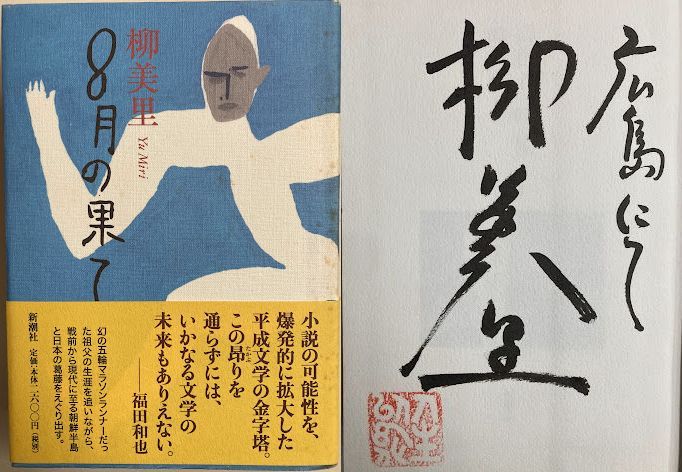 柳美里
Yu Miri
8月の果て
小説の可能性を、
爆発的に拡大した
平成文学の金字塔。
この昂りを
たかぶ
通らずには、
いかなる文学の
未来もありえない。
──福田和也
幻の五輪マラソンランナーだっ
た祖父の生涯を追いながら、
戦前から現代に至る朝鮮半島
と日本の葛藤をえぐり出す。
新潮社 定価(本体二六〇〇円(税別)
広島にて
柳美里